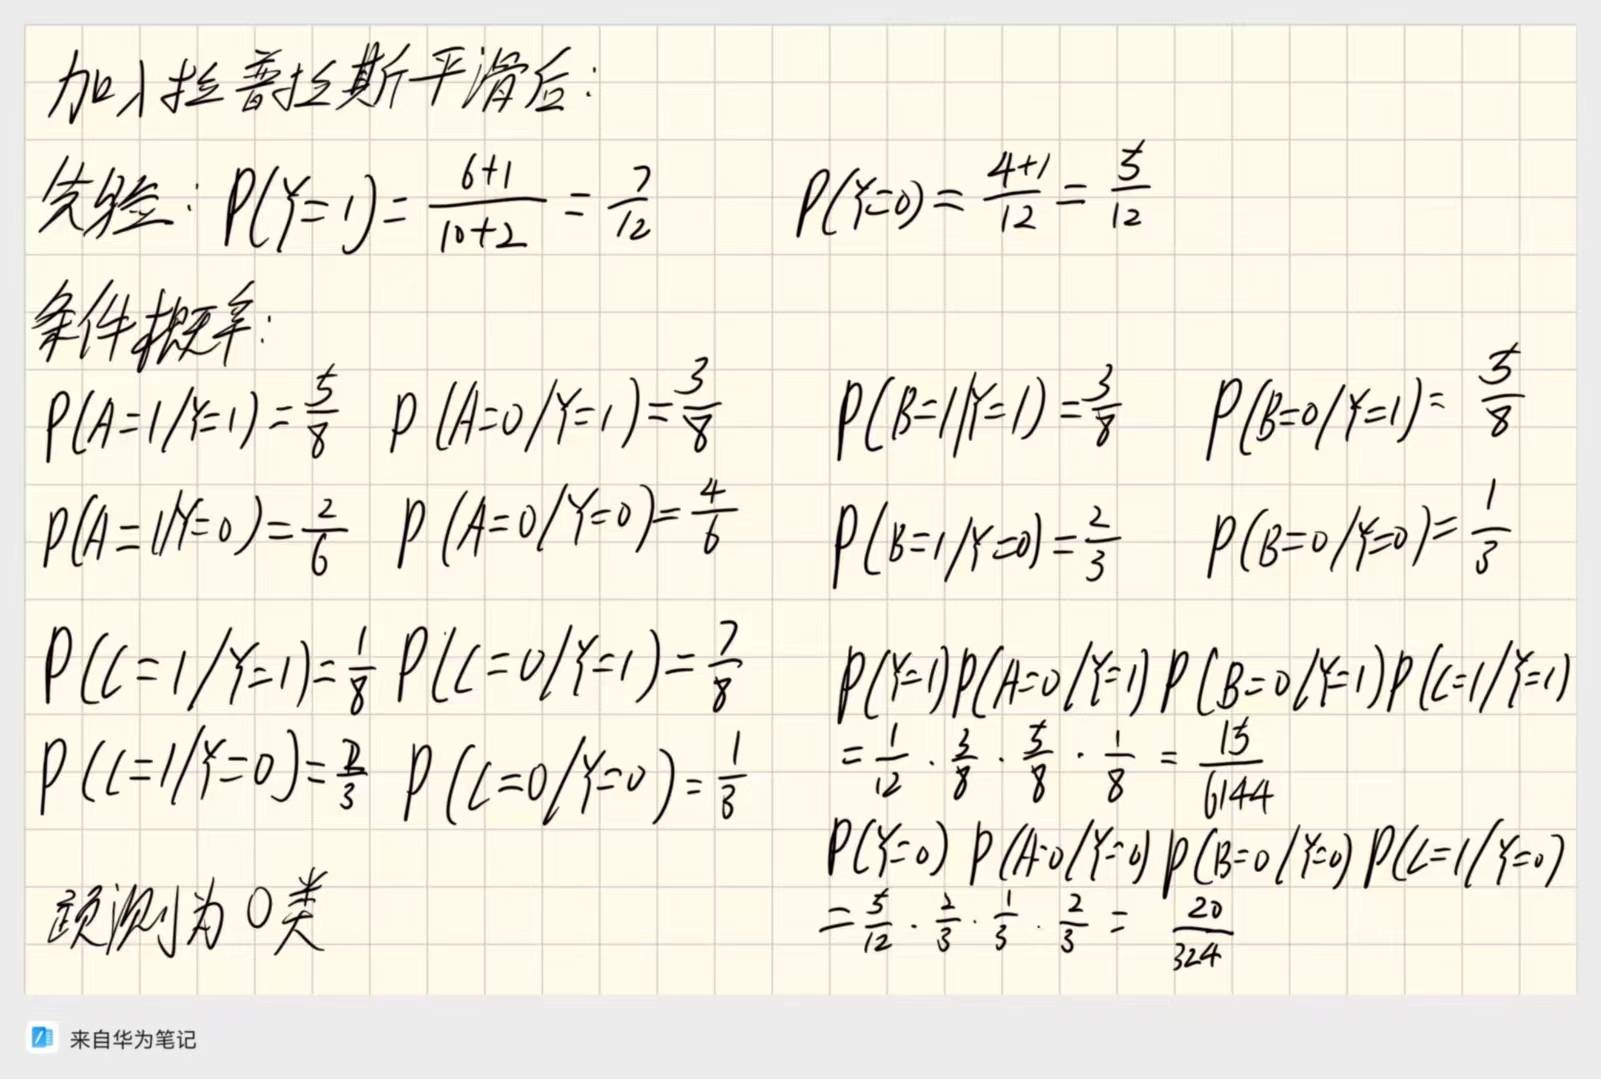 加入拉普拉斯平滑后:
先验: P(Y=1) = \frac{6+1}{10+2} = \frac{7}{12} P(Y=0) = \frac{4+1}{12} = \frac{5}{12}
条件概率:
P(A=1/Y=1) = \frac{5}{8} P(A=0/Y=1) = \frac{3}{8} P(B=1/Y=1) = \frac{3}{8} P(B=0/Y=1) = \frac{5}{8}
P(A=1/Y=0) = \frac{2}{6} P(A=0/Y=0) = \frac{4}{6} P(B=1/Y=0) = \frac{2}{3} P(B=0/Y=0) = \frac{1}{3}
P(C=1/Y=1) = \frac{1}{8} P(C=0/Y=1) = \frac{7}{8}
P(C=1/Y=0) = \frac{2}{3} P(C=0/Y=0) = \frac{1}{3}
P(Y=1) P(A=0/Y=1) P(B=0/Y=1) P(C=1/Y=1)
= \frac{1}{12} · \frac{3}{8} · \frac{5}{8} · \frac{1}{8} = \frac{15}{6144}
P(Y=0) P(A=0/Y=0) P(B=0/Y=0) P(C=1/Y=0)
= \frac{5}{12} · \frac{2}{3} · \frac{1}{3} · \frac{2}{3} = \frac{20}{324}
预测为0类
来自华为笔记